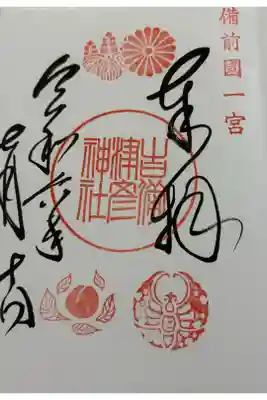 備前國一宮
奉拝
吉備
津彦
神社
令和六年